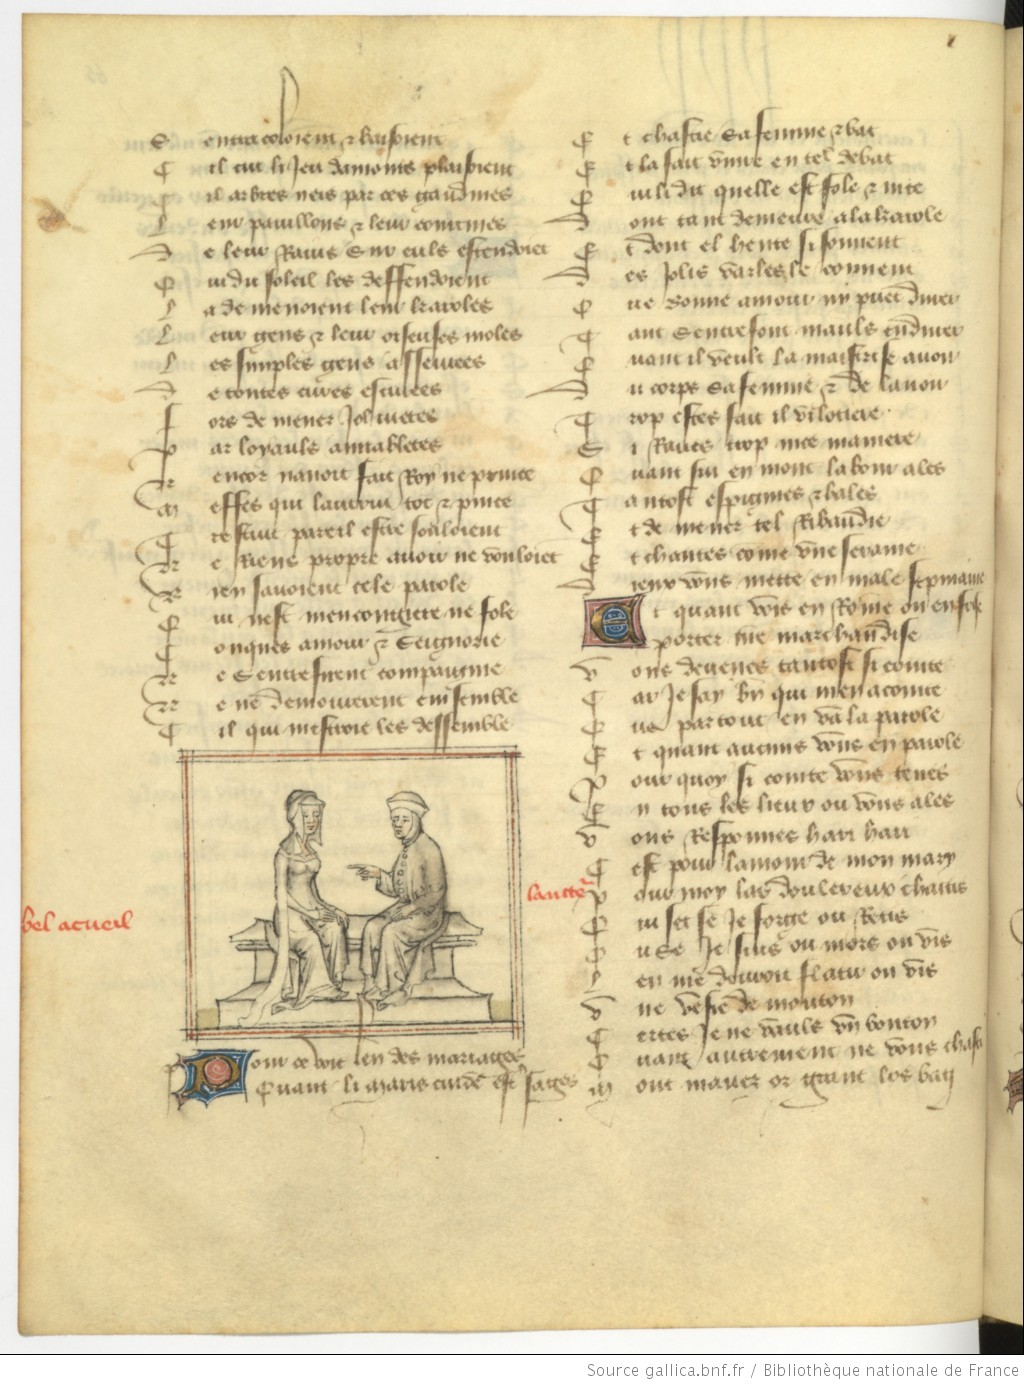 S entracoloient & baisoient
C il cui li Jeu damours plaisoient
C il arbres vers par ces gaudines
L eur pavillons & leur courtines
D e leur Rains Sur euls estendoiet
Q ui du soleil les deffendoient
L a demenoient leur karoles
L eur gens & leur oiseuses moles
L es simples gens asseurees
D e toutes cures escurees
F ors de mener Jolivetes
P ar loyauls amiabletes
N encor navoit fait Roy ne prince
M effes qui lautrui tot & pince
T restuit pareil estre souloient
N e Riens propre avoir ne vouloiet
B ien savoient cele parole
Q ui nest mencongiere ne fole
C onques amour & Seignorie
N e Sentrefirent compaignie
N e ne demourerent ensemble
C il qui mestroie les dessemble
bel acueil
Pour ce voit len des mariages
Quant li maris cuide est' sages
E t chastie sa femme & bat
E t la fait vivre en tel debat
K uil dit quelle est fole & nice
D ont tant demeure a la karole
E t dont el hente si souvent
D es Jolis varles le convent
Q ue Bonne amour ny puet durer
T ant Sentrefont mauls endurer
K uant il veult la maistrise avoir
D u corps sa femme & de lavoir
T rop estes fait il vilotiere
S i Raves trop nice maniere
Q uant sui en mon labour ales
T antost espignies & bales
E t de mener tel Ribaudie
E t chantes come une seraine
D ieux vous mette en male sepmaine
Et quant vois en Rome ou en frise
porter nre marchandise
V ous devenes tantost si cointe
C ar Je say bn qui men acointe
Q ue partout en va la parole
E t quant aucuns vous en parole
P our quoy si cointe vous tenes
E n tous les lieux ou vous ales
V ous Responnes hari hari
C est pour lamour de mon mary
P our moy las doulereux chaitis
Q ui set se Je forge ou tis
O u se Je suis ou mors ou vis
V ne vessie de mouton
C ertes Je ne vauls un bouton
Q uant autrement ne vous chasti
M out mavez or grant los basty